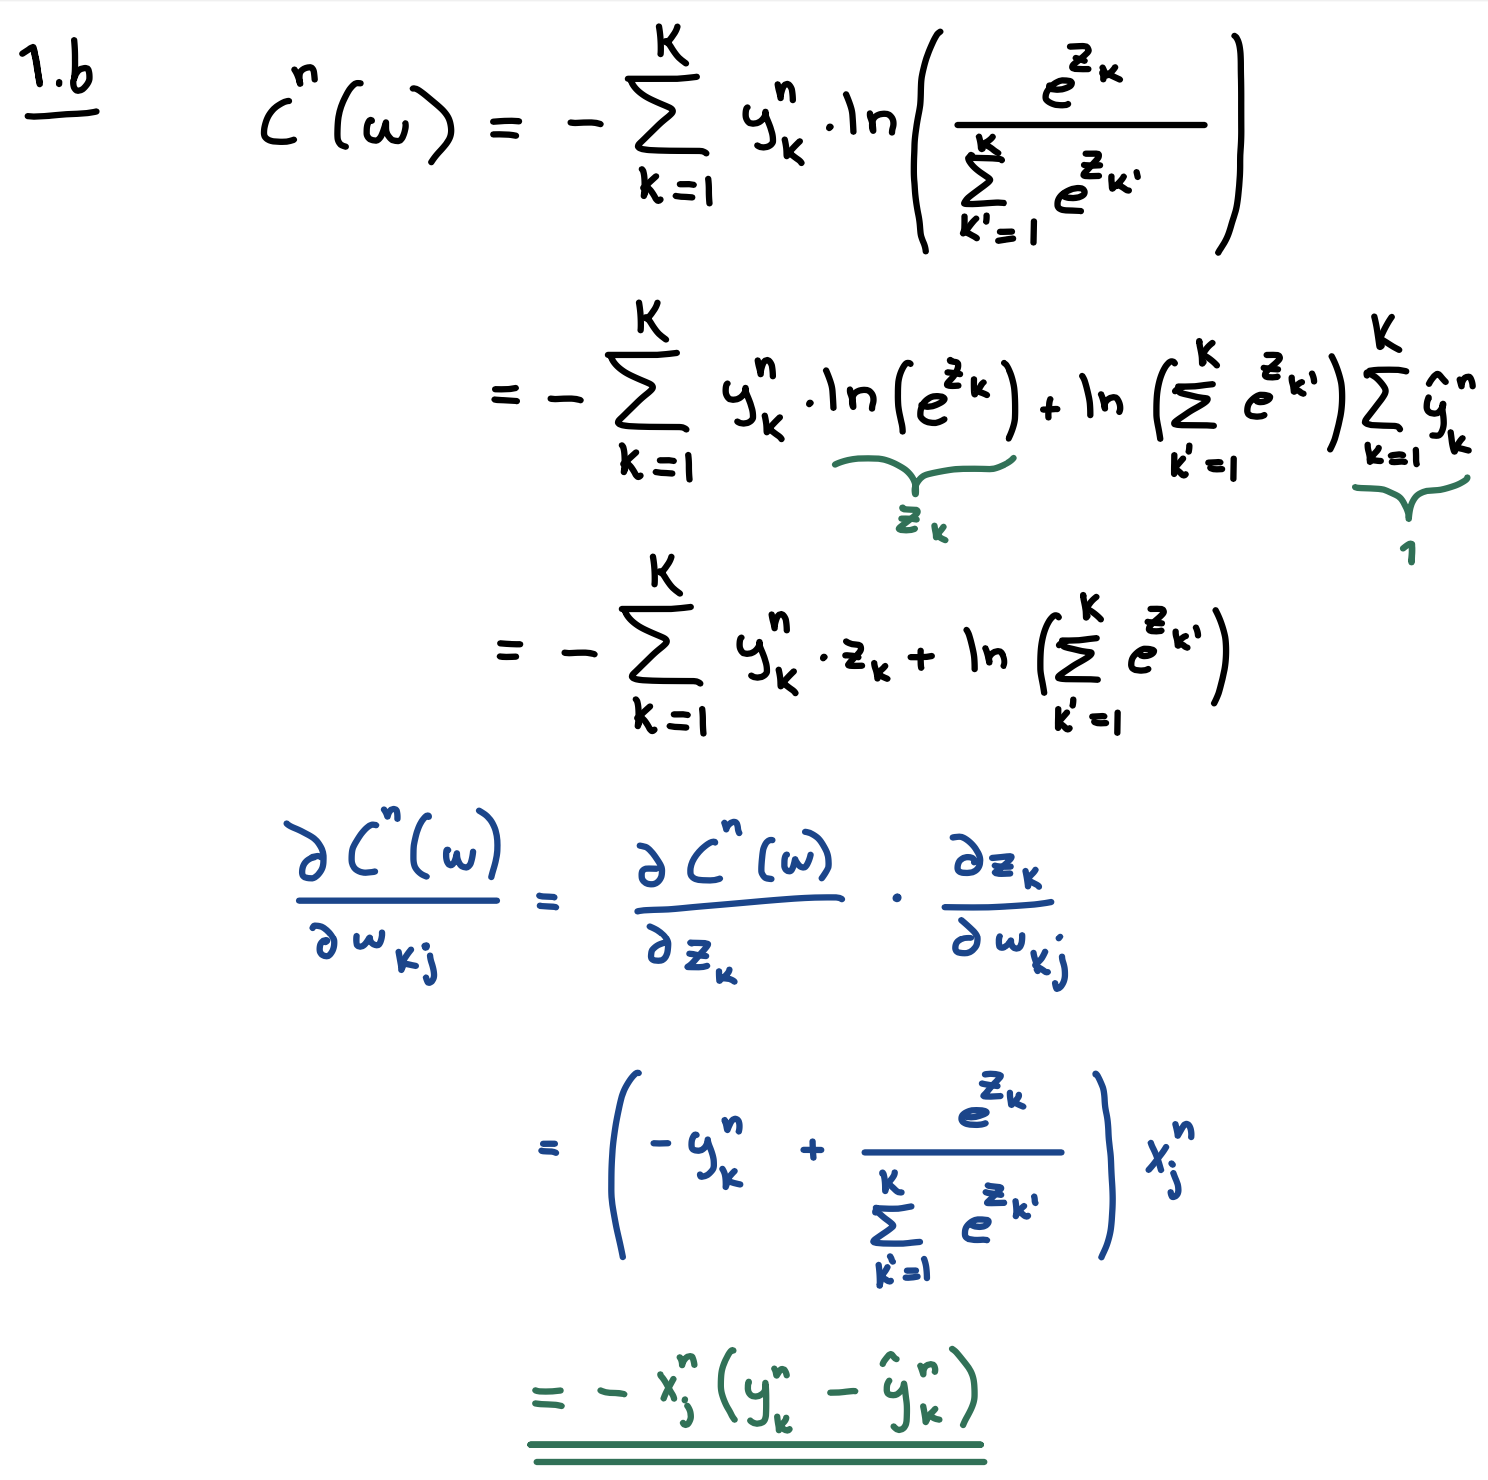 1.b
C^n(w) = - \sum_{k=1}^{K} y_k^n \cdot \ln\left(\frac{e^{z_k}}{\sum_{k'=1}^{K} e^{z_{k'}}}\right)
= - \sum_{k=1}^{K} y_k^n \cdot \underbrace{\ln(e^{z_k})}_{z_k} + \ln\left(\sum_{k'=1}^{K} e^{z_{k'}}\right) \underbrace{\sum_{k=1}^{K} \hat{y}_k^n}_{1}
= - \sum_{k=1}^{K} y_k^n \cdot z_k + \ln\left(\sum_{k'=1}^{K} e^{z_{k'}}\right)
\frac{\partial C^n(w)}{\partial w_{kj}} = \frac{\partial C^n(w)}{\partial z_k} \cdot \frac{\partial z_k}{\partial w_{kj}}
= \left(-y_k^n + \frac{e^{z_k}}{\sum_{k'=1}^{K} e^{z_{k'}}}\right) x_j^n
= - x_j^n (y_k^n - \hat{y}_k^n)